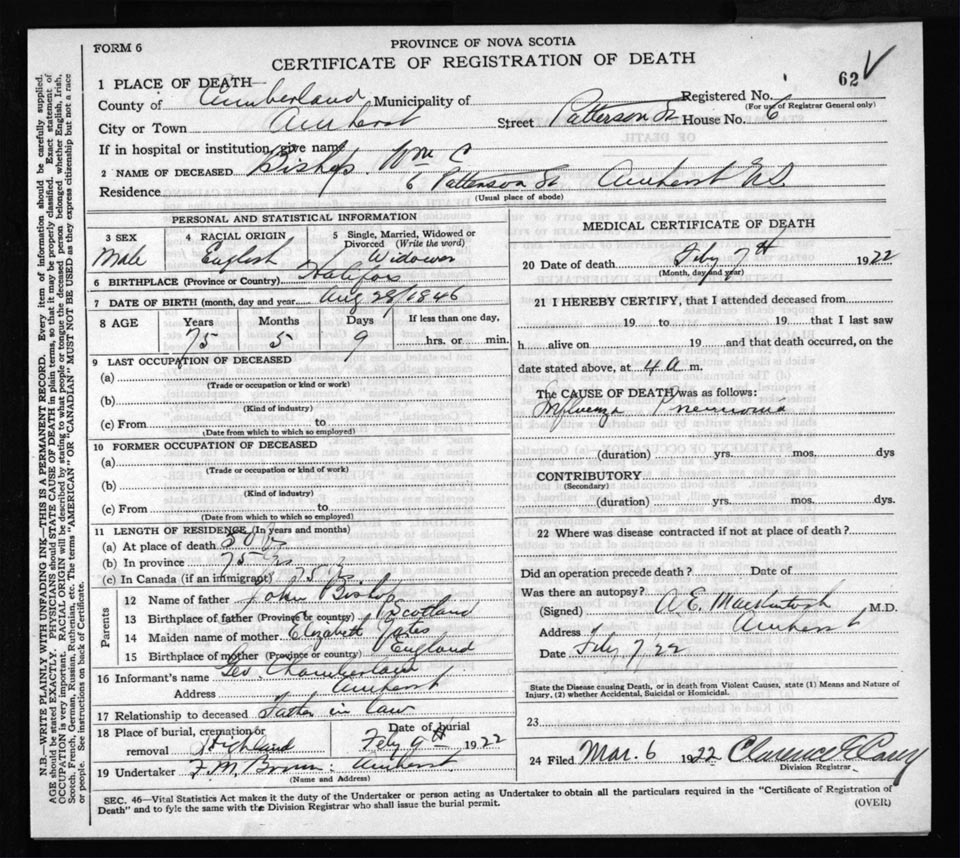 FORM 6
PROVINCE OF NOVA SCOTIA
CERTIFICATE OF REGISTRATION OF DEATH
62
1 PLACE OF DEATH
Registered No.
County of Cumberland Municipality of (For use of Registrar General only)
City or Town Amherst Street Patterson St House No. 6
If in hospital or institution, give name
2 NAME OF DECEASED Bishop. Wm C
Residence 6 Patterson St Amherst N.S.
(Usual place of abode)
PERSONAL AND STATISTICAL INFORMATION
3 SEX 4 RACIAL ORIGIN 5 Single, Married, Widowed or
Divorced (Write the word)
Male English Widower
6 BIRTHPLACE (Province or Country) Halifax
7 DATE OF BIRTH (month, day and year) Aug 28/1846
8 AGE Years Months Days If less than one day,
75 5 9 hrs. or min.
9 LAST OCCUPATION OF DECEASED
(a)
(Trade or occupation or kind or work)
(b)
(Kind of industry)
(c) From to
(Date from which to which so employed)
10 FORMER OCCUPATION OF DECEASED
(a)
(Trade or occupation or kind of work)
(b)
(Kind of industry)
(c) From to
(Date from which to which so employed)
11 LENGTH OF RESIDENCE (In years and months)
(a) At place of death 50
(b) In province 75
(c) In Canada (if an immigrant) 75
Parents
12 Name of father John Bishop
13 Birthplace of father (Province or country) Scotland
14 Maiden name of mother Elizabeth Yates
15 Birthplace of mother (Province or country) England
16 Informant's name Geo. Chamberlain
Address Amherst
17 Relationship to deceased Father in law
18 Place of burial, cremation or Date of burial
removal Highland Feby 9th 1922
19 Undertaker F. M. Brown: Amherst
(Name and Address)
MEDICAL CERTIFICATE OF DEATH
20 Date of death Feby 7th 1922
(Month, day and year)
21 I HEREBY CERTIFY, that I attended deceased from
19 to 19 that I last saw
h alive on 19 and that death occurred, on the
date stated above, at 4 a m.
The CAUSE OF DEATH was as follows:
Influenza Pneumonia
(duration) yrs. mos. dys
CONTRIBUTORY
(Secondary)
(duration) yrs. mos. dys.
22 Where was disease contracted if not at place of death?
Did an operation precede death? Date of
Was there an autopsy?
(Signed) A. E. MacKintosh M.D.
Address Amherst
Date Feby 7/22
State the Disease causing Death, or in death from Violent Causes, state (1) Means and Nature of
Injury, (2) whether Accidental, Suicidal or Homicidal.
23
24 Filed Mar. 6 1922 Clarence
Division Registrar
SEC. 46—Vital Statistics Act makes it the duty of the Undertaker or person acting as Undertaker to obtain all the particulars required in the "Certificate of Registration of
Death" and to fyle the same with the Division Registrar who shall issue the burial permit.
(OVER)
N.B.—WRITE PLAINLY WITH UNFADING INK—THIS IS A PERMANENT RECORD. Every item of information should be carefully supplied.
AGE should be stated EXACTLY. PHYSICIANS should STATE CAUSE OF DEATH in plain terms, so that it may be properly classified. Exact statement of
OCCUPATION is very important. RACIAL ORIGIN will be described by stating to what people or tongue the deceased person belonged whether English, Irish,
Scotch, French, German, Russian, Ruthenian, etc. The terms "AMERICAN" OR "CANADIAN" MUST NOT BE USED as they express citizenship but not a race
or people. See instructions on back of Certificate.